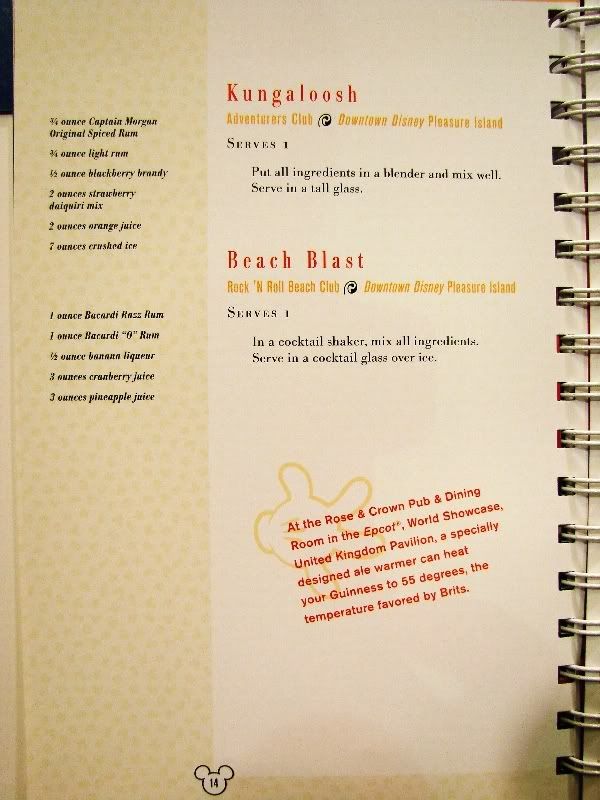 Kungaloosh
Adventurers Club Downtown Disney Pleasure Island
SERVES 1
¾ ounce Captain Morgan
Original Spiced Rum
¾ ounce light rum
½ ounce blackberry brandy
2 ounces strawberry
daiquiri mix
2 ounces orange juice
7 ounces crushed ice
Put all ingredients in a blender and mix well.
Serve in a tall glass.
Beach Blast
Rock 'N Roll Beach Club Downtown Disney Pleasure Island
SERVES 1
1 ounce Bacardi Razz Rum
1 ounce Bacardi "O" Rum
½ ounce banana liqueur
3 ounces cranberry juice
3 ounces pineapple juice
In a cocktail shaker, mix all ingredients.
Serve in a cocktail glass over ice.
At the Rose & Crown Pub & Dining
Room in the Epcot®, World Showcase,
United Kingdom Pavilion, a specially
designed ale warmer can heat
your Guinness to 55 degrees, the
temperature favored by Brits.
14